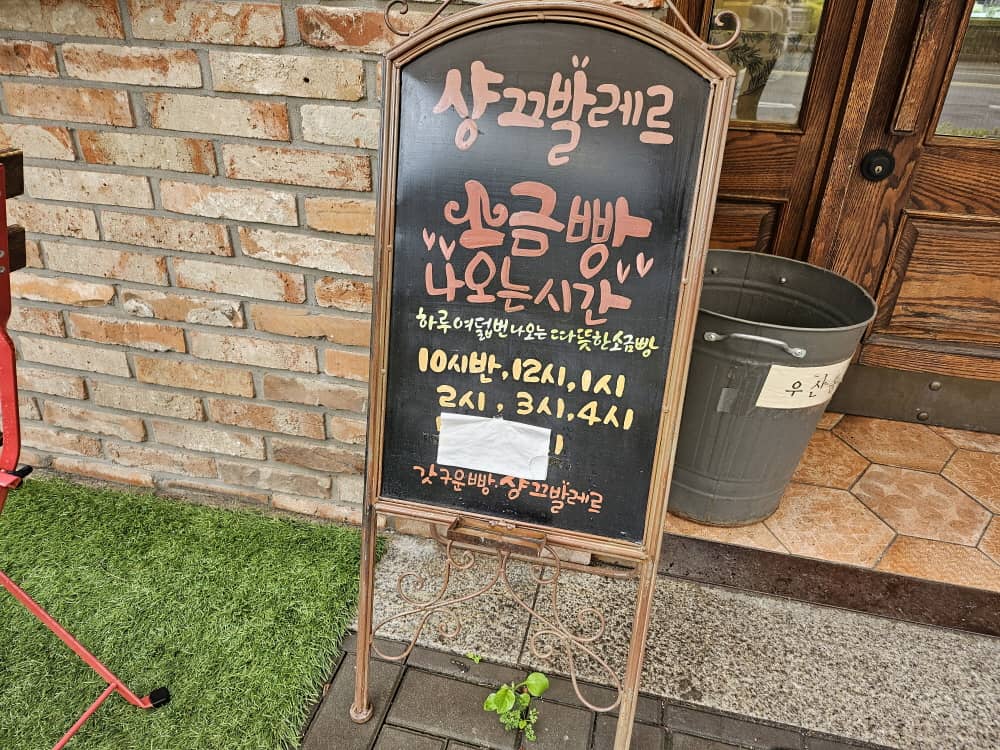 샹끄발레르
소금빵
나오는시간
하루여덟번나오는 따뜻한소금빵
10시반, 12시, 1시
2시, 3시, 4시
갓구운빵. 샹끄발레르
우산